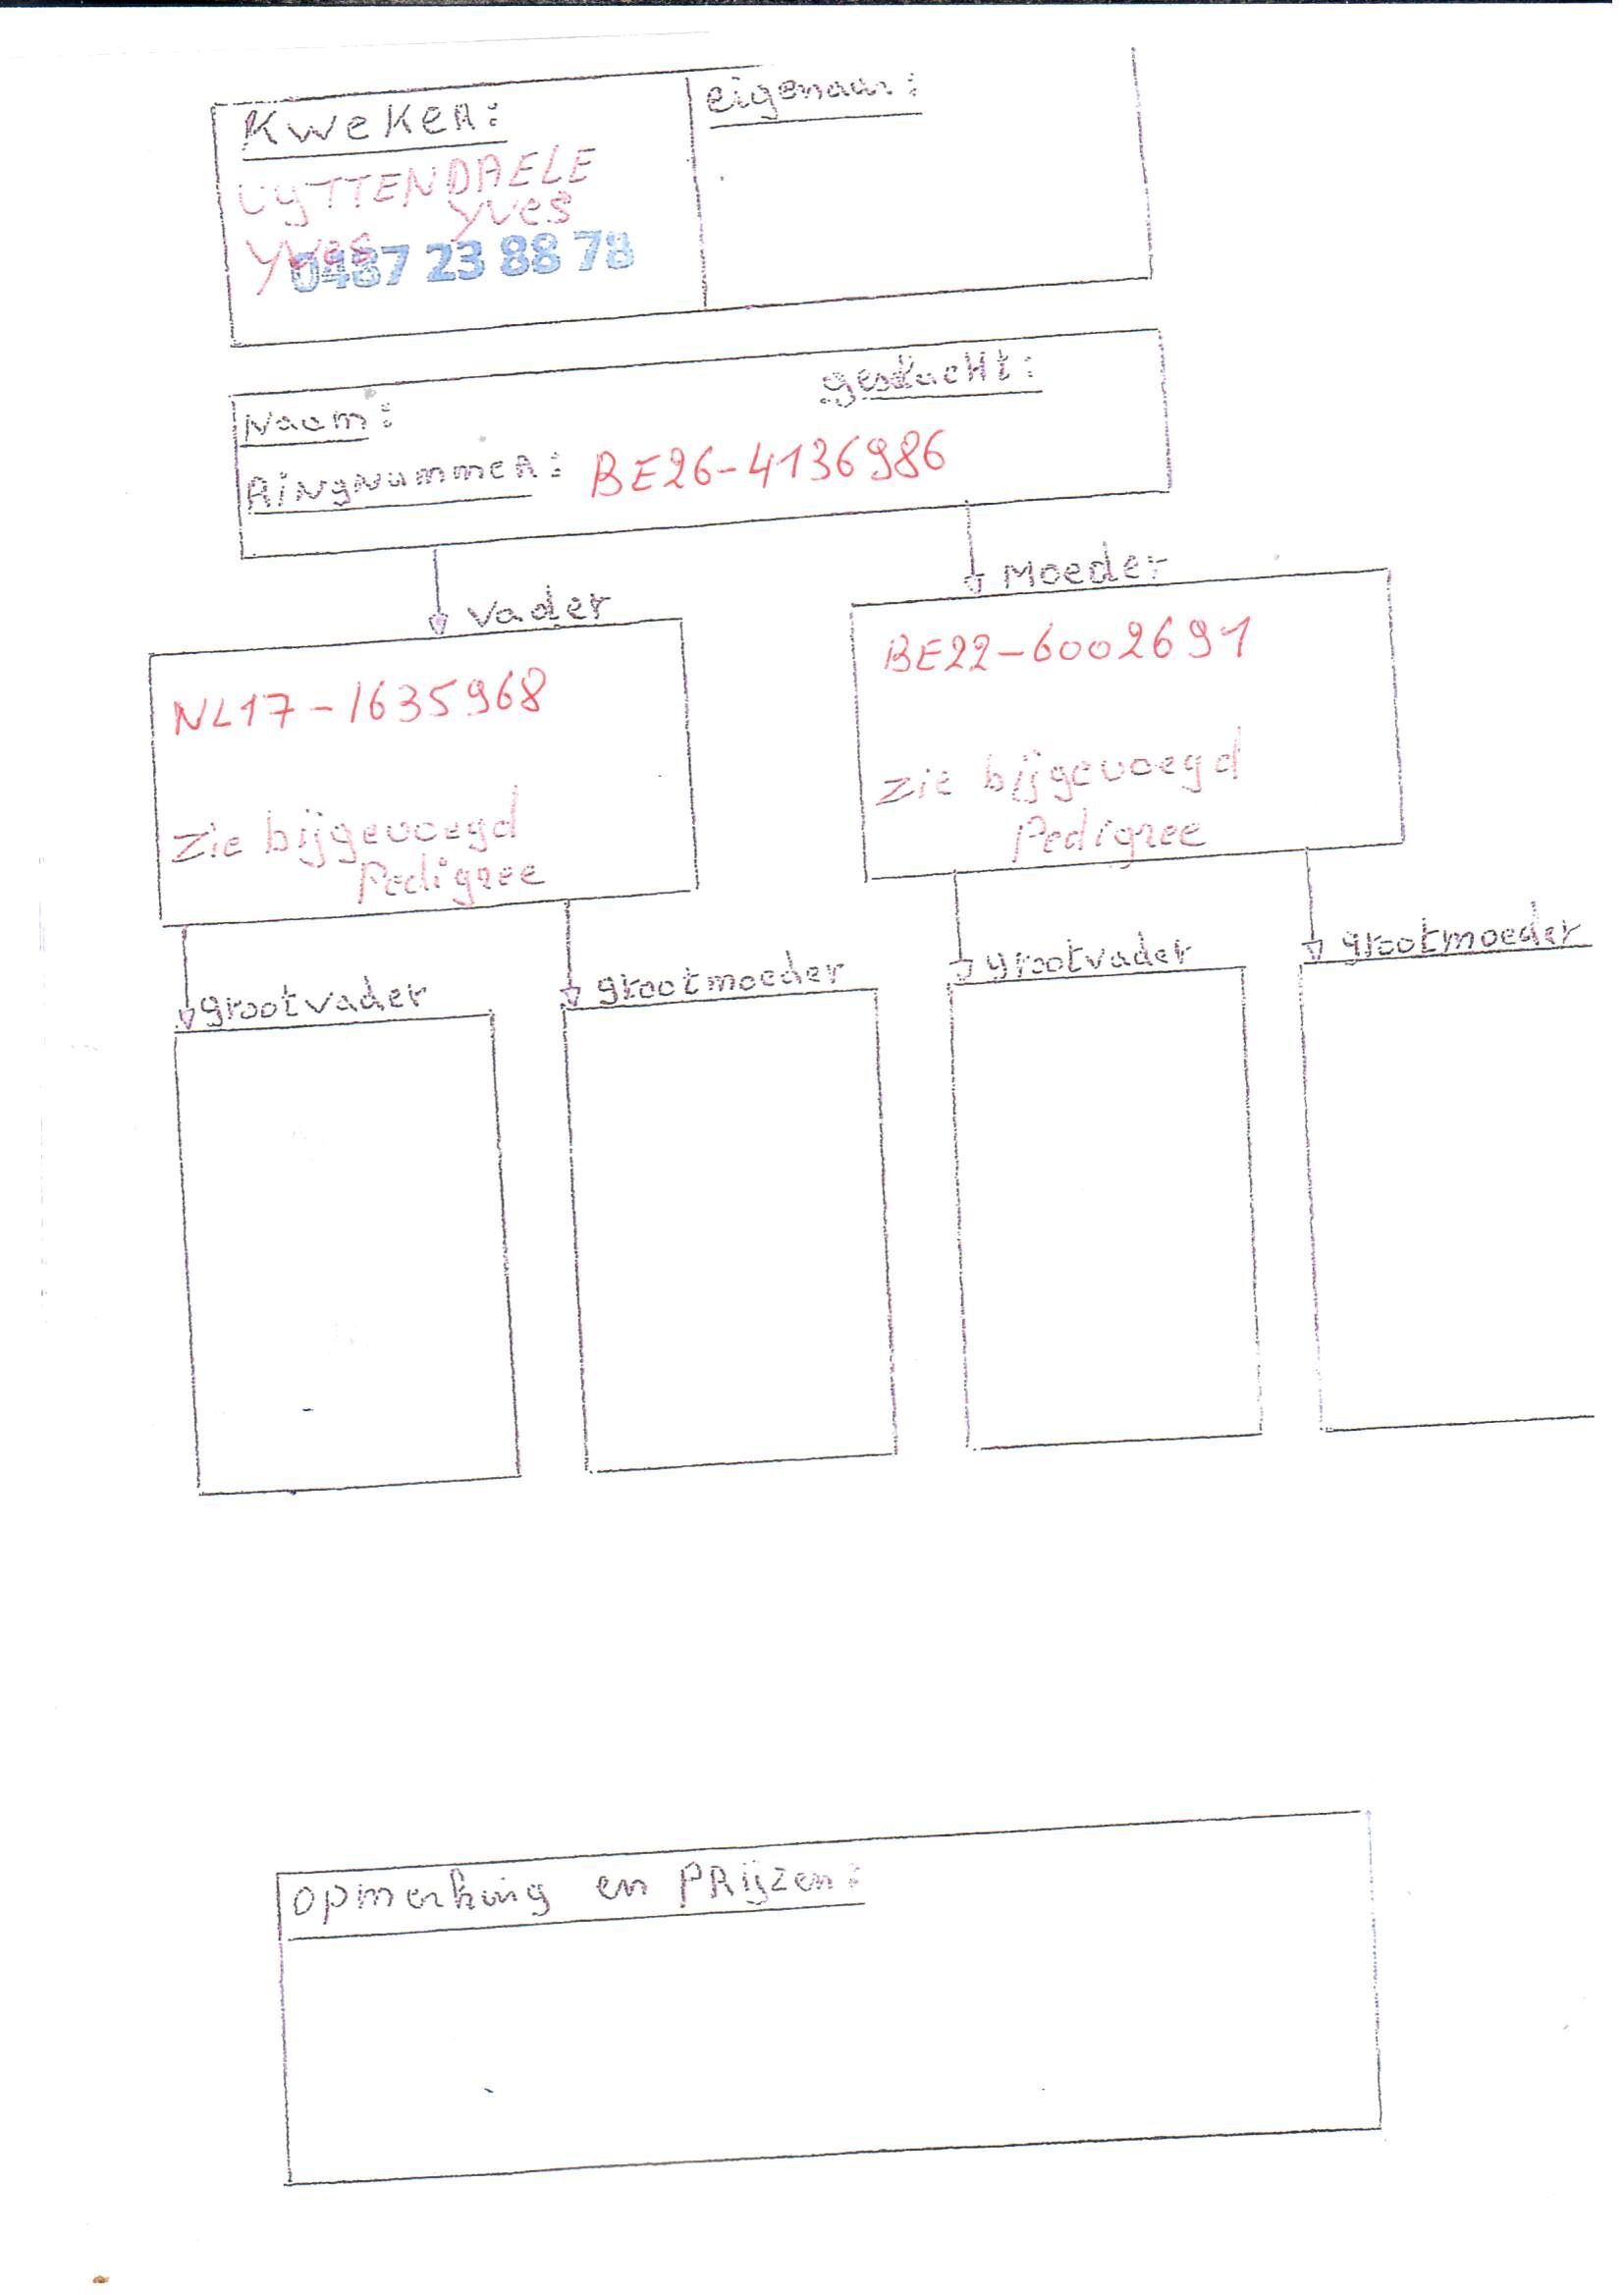 Kweker:
eigenaar:
UYTTENDAELE
Yves
Yves
0487 23 88 78
Naam:
geslacht:
Ringnummer: BE26-4136986
Vader
Moeder
NL17-1635968
BE22-6002691
Zie bijgevoegd
Pedigree
Zie bijgevoegd
Pedigree
grootvader
grootmoeder
grootvader
grootmoeder
opmerking en PRijzen: